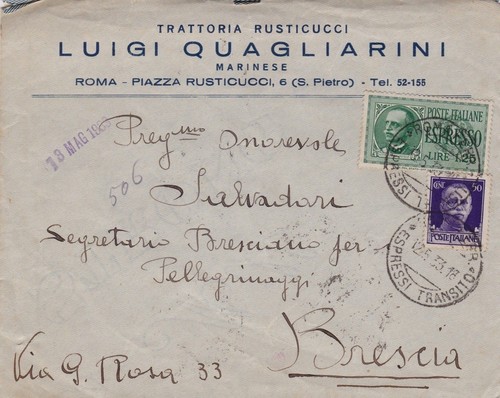 TRATTORIA RUSTICUCCI
LUIGI QUAGLIARINI
MARINESE
ROMA - PIAZZA RUSTICUCCI, 6 (S. Pietro) - Tel. 52-155
13 MAG 193
506
POSTE ITALIANE
ESPRESSO
LIRE 1.25
CENT. 50
POSTE ITALIANE
12.5.33.18
ESPRESSI TRANSITO
ESPRESSI
Preg.mo Onorevole
Salvadori
Segretario Bresciano per i
Pellegrinaggi
Brescia
Via G. Rosa 33